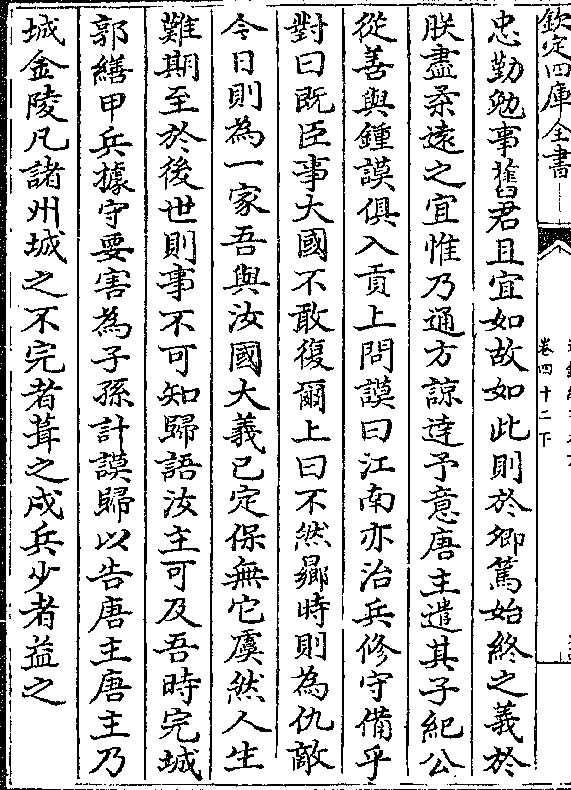 欽定四庫全書
卷四十二下
忠勤勉事舊君且宜如故如此則於卿篤始終之義於
朕盡柔遠之宜惟乃通方諒達予意唐主遣其子紀公
從善與鍾謨俱入貢上問謨曰江南亦治兵修守備乎
對曰既臣事大國不敢復爾上曰不然曏時則為仇敵
今日則為一家吾與汝國大義已定保無它虞然人生
難期至於後世則事不可知歸語汝主可及吾時完城
郭繕甲兵據守要害為子孫計謨歸以告唐主唐主乃
城金陵凡諸州城之不完者葺之戍兵少者益之